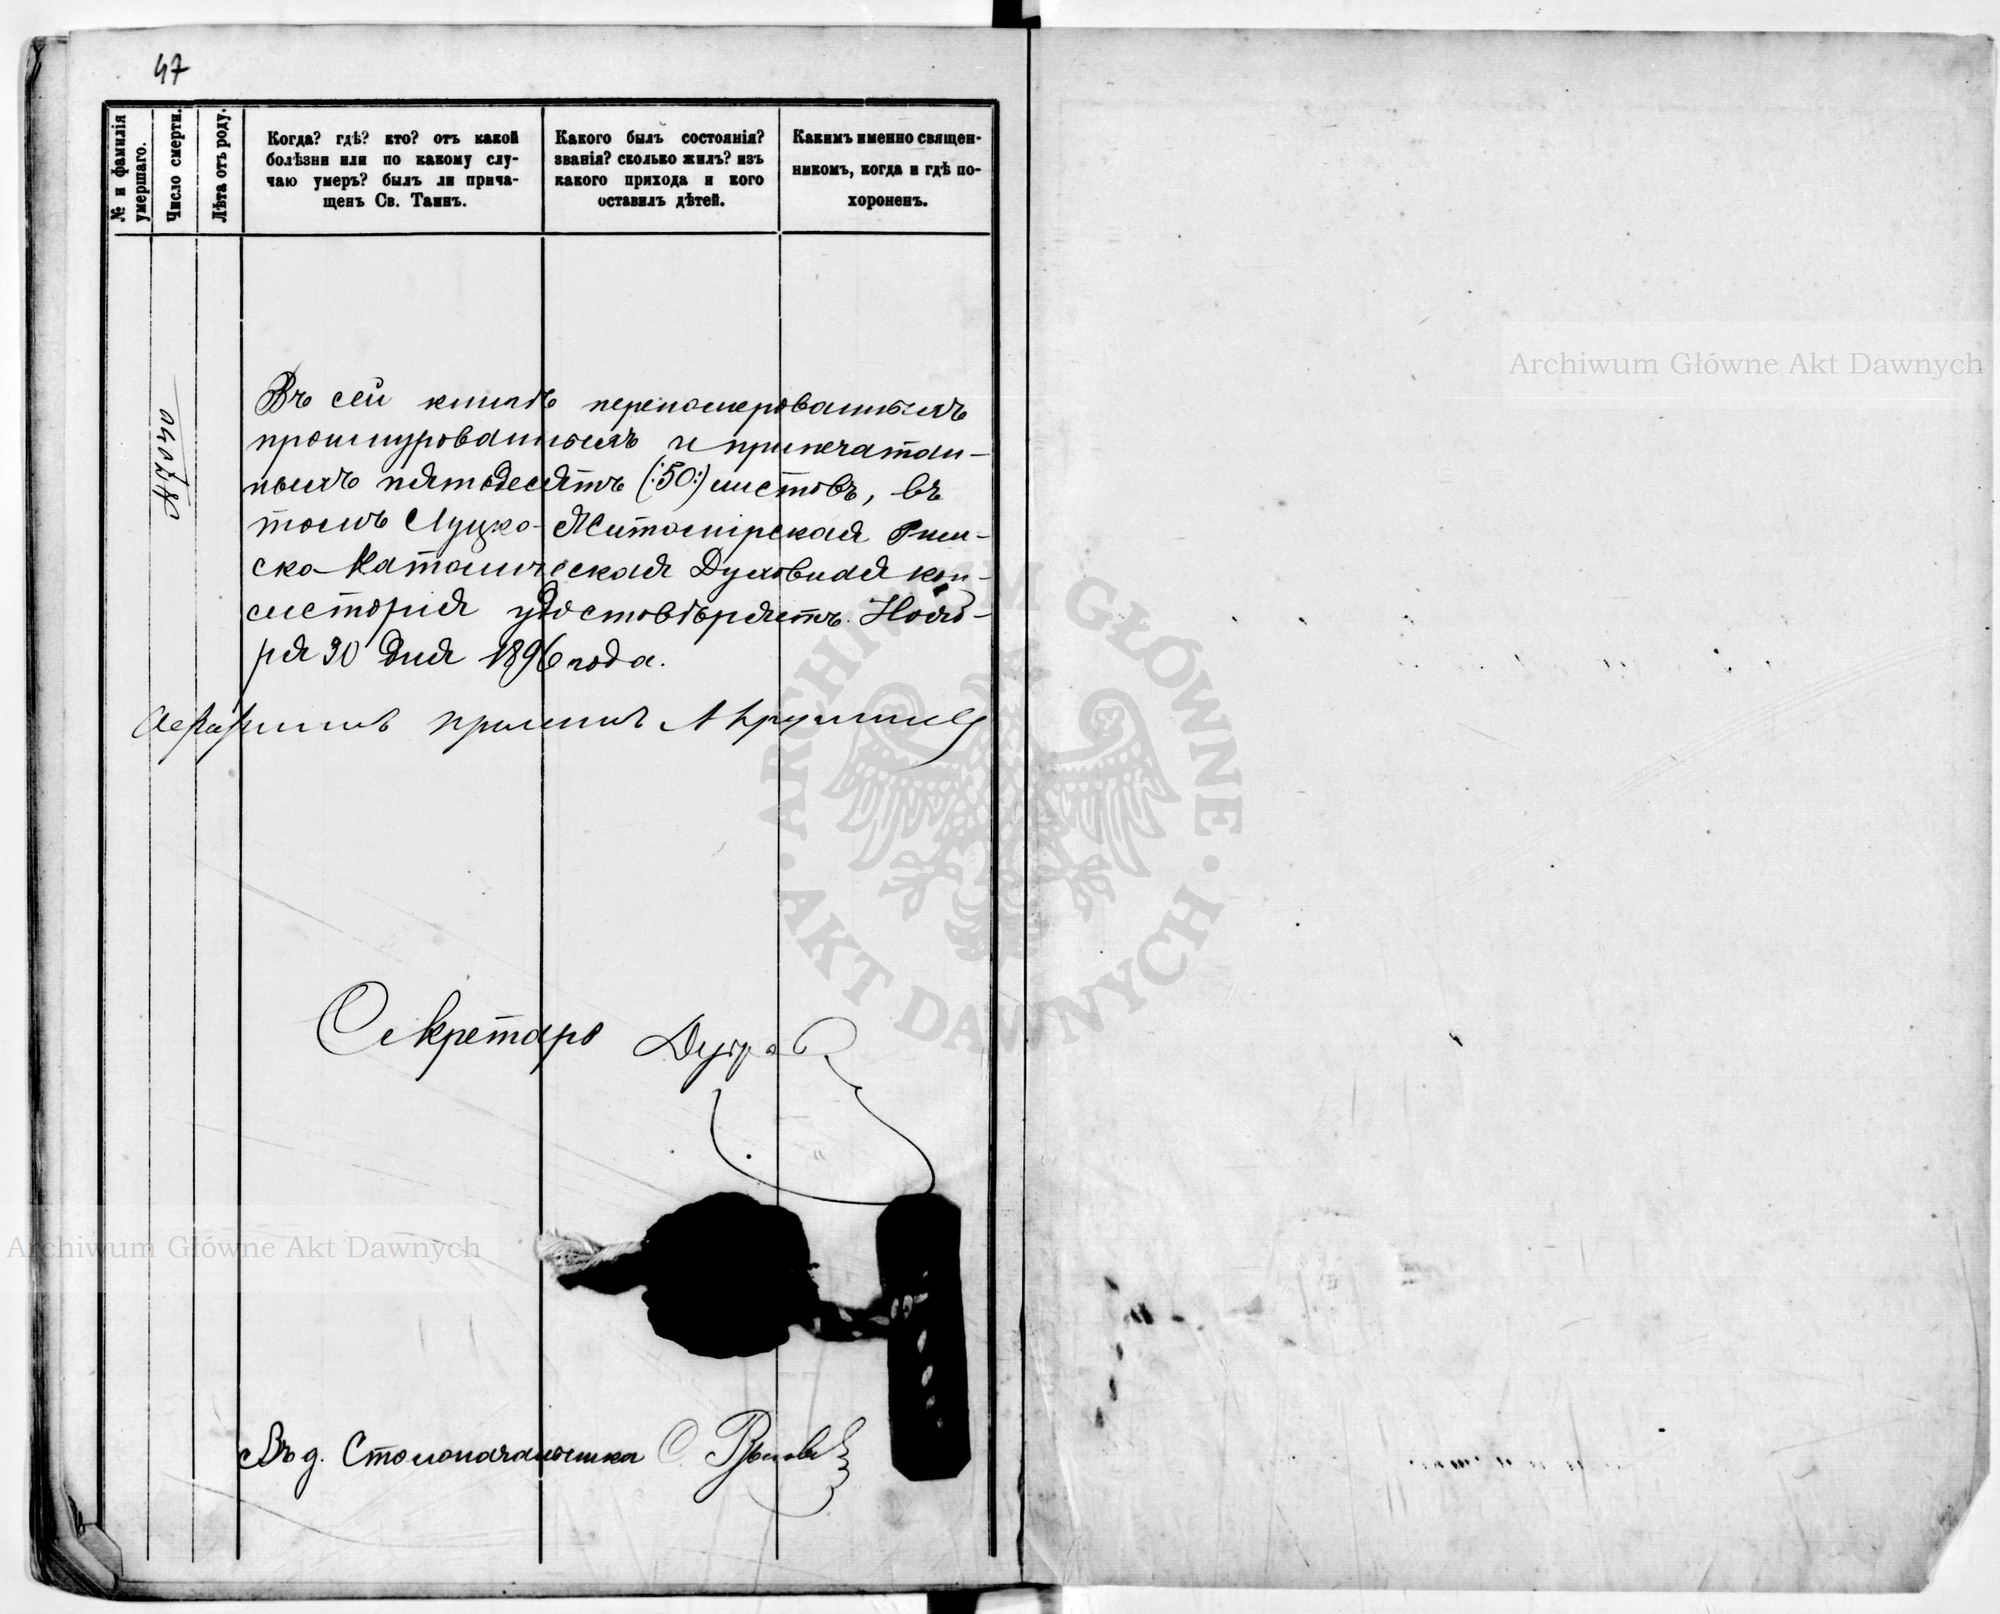 47
№ и фамилія умершаго.
Число смерти.
Лѣта отъ роду.
Когда? гдѣ? кто? отъ какой
болѣзни или по какому слу-
чаю умеръ? былъ ли прича-
щенъ Св. Таинъ.
Какого былъ состоянія?
званія? сколько жилъ? изъ
какого прихода и кого
оставилъ дѣтей.
Какимъ именно священ-
никомъ, когда и гдѣ по-
хороненъ.
Въ сей книгѣ перенумерованныхъ
прошнурованныхъ и припечатан-
ныхъ пятьдесятъ (:50:) листовъ, въ
томъ Луцко-Житомірская Рим-
ско-Католическая Духовная кон-
систорія удостовѣряетъ. Нояб-
ря 30 дня 1896 года.
Секретарь
В. д. Столоначальника
Archiwum Główne Akt Dawnych
Archiwum Główne Akt Dawnych
ARCHIWUM GŁÓWNE
AKT DAWNYCH